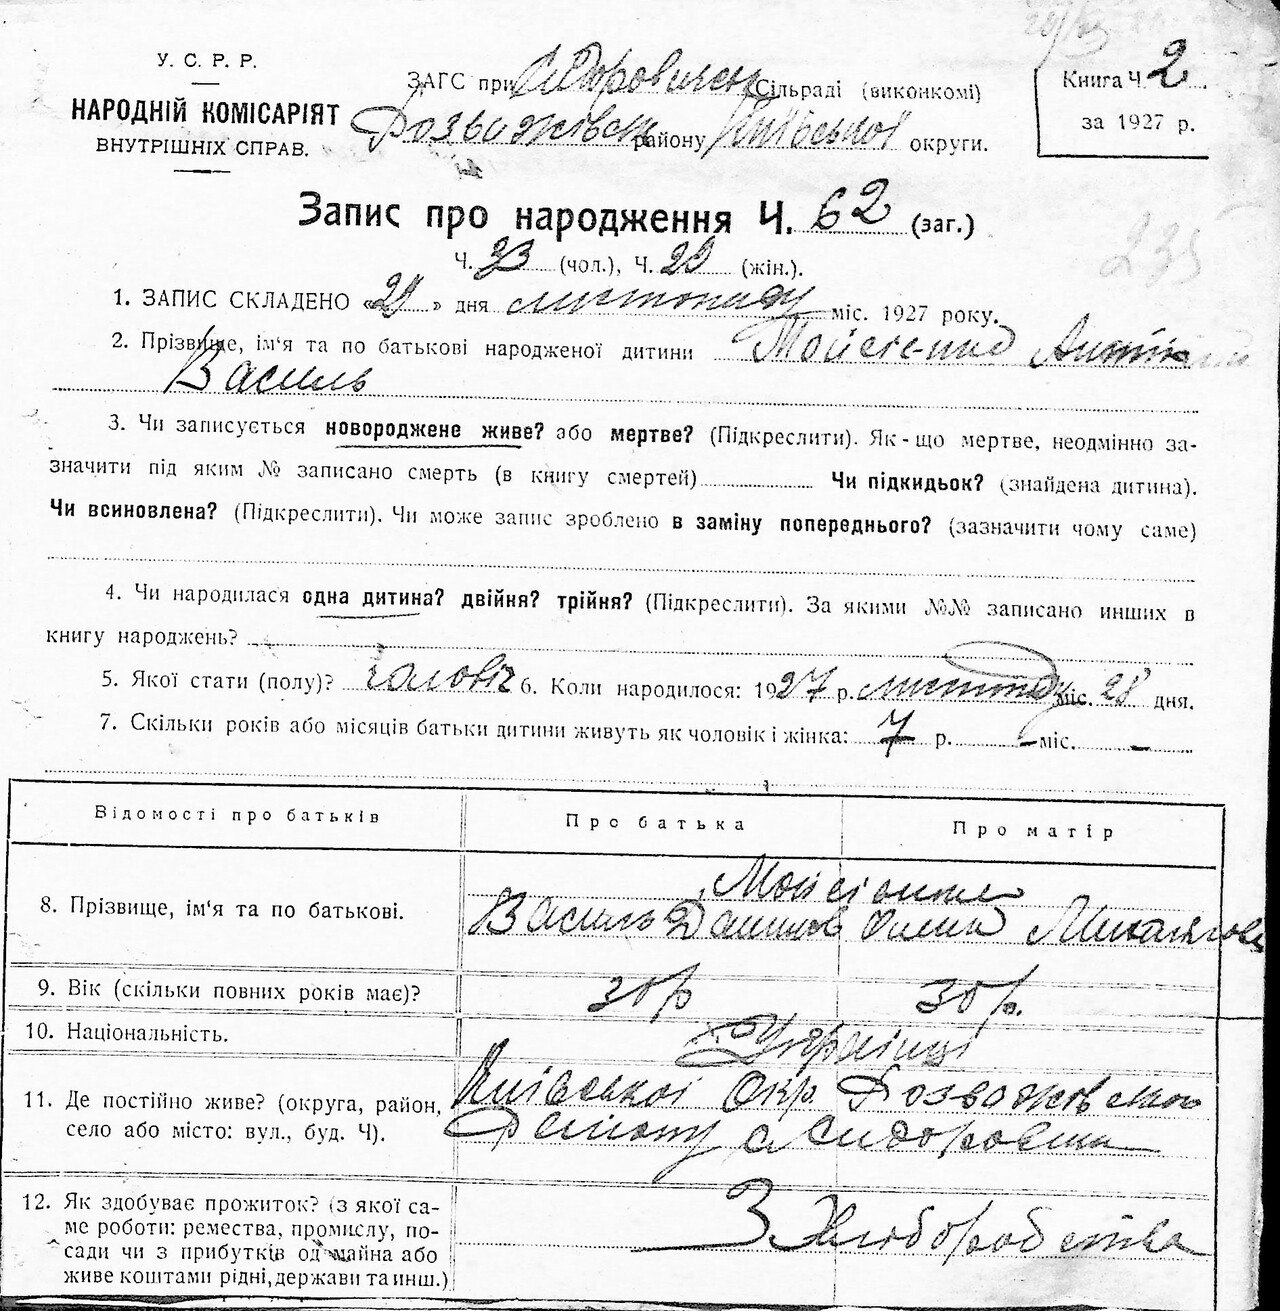 У. С. Р. Р.
НАРОДНІЙ КОМІСАРІЯТ
ВНУТРІШНІХ СПРАВ.
ЗАГС при Сідоровицьк Сільраді (виконкомі)
Розважівськ району Київської округи.
Книга Ч. 2
за 1927 р.
Запис про народження Ч. 62 (заг.)
235
Ч. 33 (чол.), Ч. 29 (жін.).
1. ЗАПИС СКЛАДЕНО «29» дня листопаду міс. 1927 року.
2. Прізвище, ім'я та по батькові народженої дитини Мойсієнко
Василь
3. Чи записується новороджене живе? або мертве? (Підкреслити). Як-що мертве, неодмінно за-
значити під яким № записано смерть (в книгу смертей) Чи підкидьок? (знайдена дитина).
Чи всиновлена? (Підкреслити). Чи може запис зроблено в заміну попереднього? (зазначити чому саме)
4. Чи народилася одна дитина? двійня? трійня? (Підкреслити). За якими №№ записано инших в
книгу народжень?
5. Якої стати (полу)? чоловіч 6. Коли народилося: 1927 р. листопаду міс. 28 дня.
7. Скільки років або місяців батьки дитини живуть як чоловік і жінка: 7 р. – міс. –
Відомості про батьків
Про батька
Про матір
8. Прізвище, ім'я та по батькові.
Мойсієнки
Василь Данилов
Михайлов
9. Вік (скільки повних років має)?
30 р
30 р.
10. Національність.
Українці
11. Де постійно живе? (округа, район,
село або місто: вул., буд. Ч).
Київської Окр. Розважовського
Району с Сидоровичи
12. Як здобуває прожиток? (з якої са-
ме роботи: ремества, промислу, по-
сади чи з прибутків од майна або
живе коштами рідні, держави та инш.)
З Хлиборобства